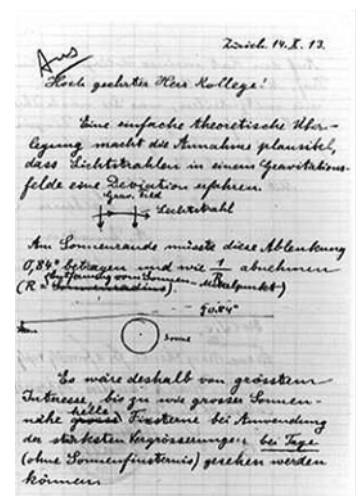 Aus
Zürich. 14. X. 13.
Hoch geehrter Herr Kollege!
Eine einfache theoretische Über-
legung macht die Annahme plausibel,
dass Lichtstrahlen in einem Gravitations-
felde eine Deviation erfahren.
Grav. Feld
Lichtstrahl
Am Sonnenrande müsste diese Ablenkung
0,84" betragen und wie 1/R abnehmen
(R = Sonnenradius).
Entfernung vom Sonnen-Mittelpunkt
0.84"
Sonne
Es wäre deshalb von grösstem
Interesse, bis zu wie grosser Sonnen-
nähe grosse Fixsterne bei Anwendung
helle
der stärksten Vergrösserungen bei Tage
(ohne Sonnenfinsternis) gesehen werden
können.